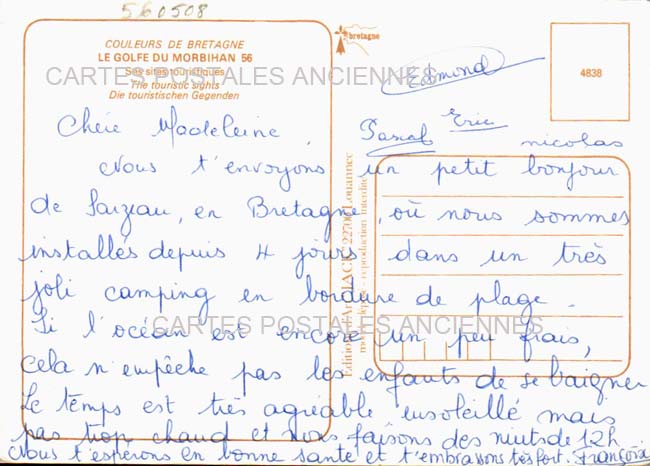 560508
COULEURS DE BRETAGNE
LE GOLFE DU MORBIHAN 56
Ses sites touristiques
The touristic sights
Die touristischen Gegenden
bretagne
4838
CARTES POSTALES ANCIENNES
Edmond
Pascal Eric nicolas
Chère Madeleine,
Nous t'envoyons un petit bonjour
de Sarzeau, en Bretagne, où nous sommes
installés depuis 4 jours dans un très
joli camping en bordure de plage.
Si l'océan est encore un peu frais,
CARTES POSTALES ANCIENNES
cela n'empêche pas les enfants de se baigner
Le temps est très agréable ensoleillé mais
pas trop chaud et nous faisons des nuits de 12h
Nous t'espérons en bonne santé et t'embrassons très fort. Françoise
Editions d'Art JACK 22700 Louannec
reproduction interdite